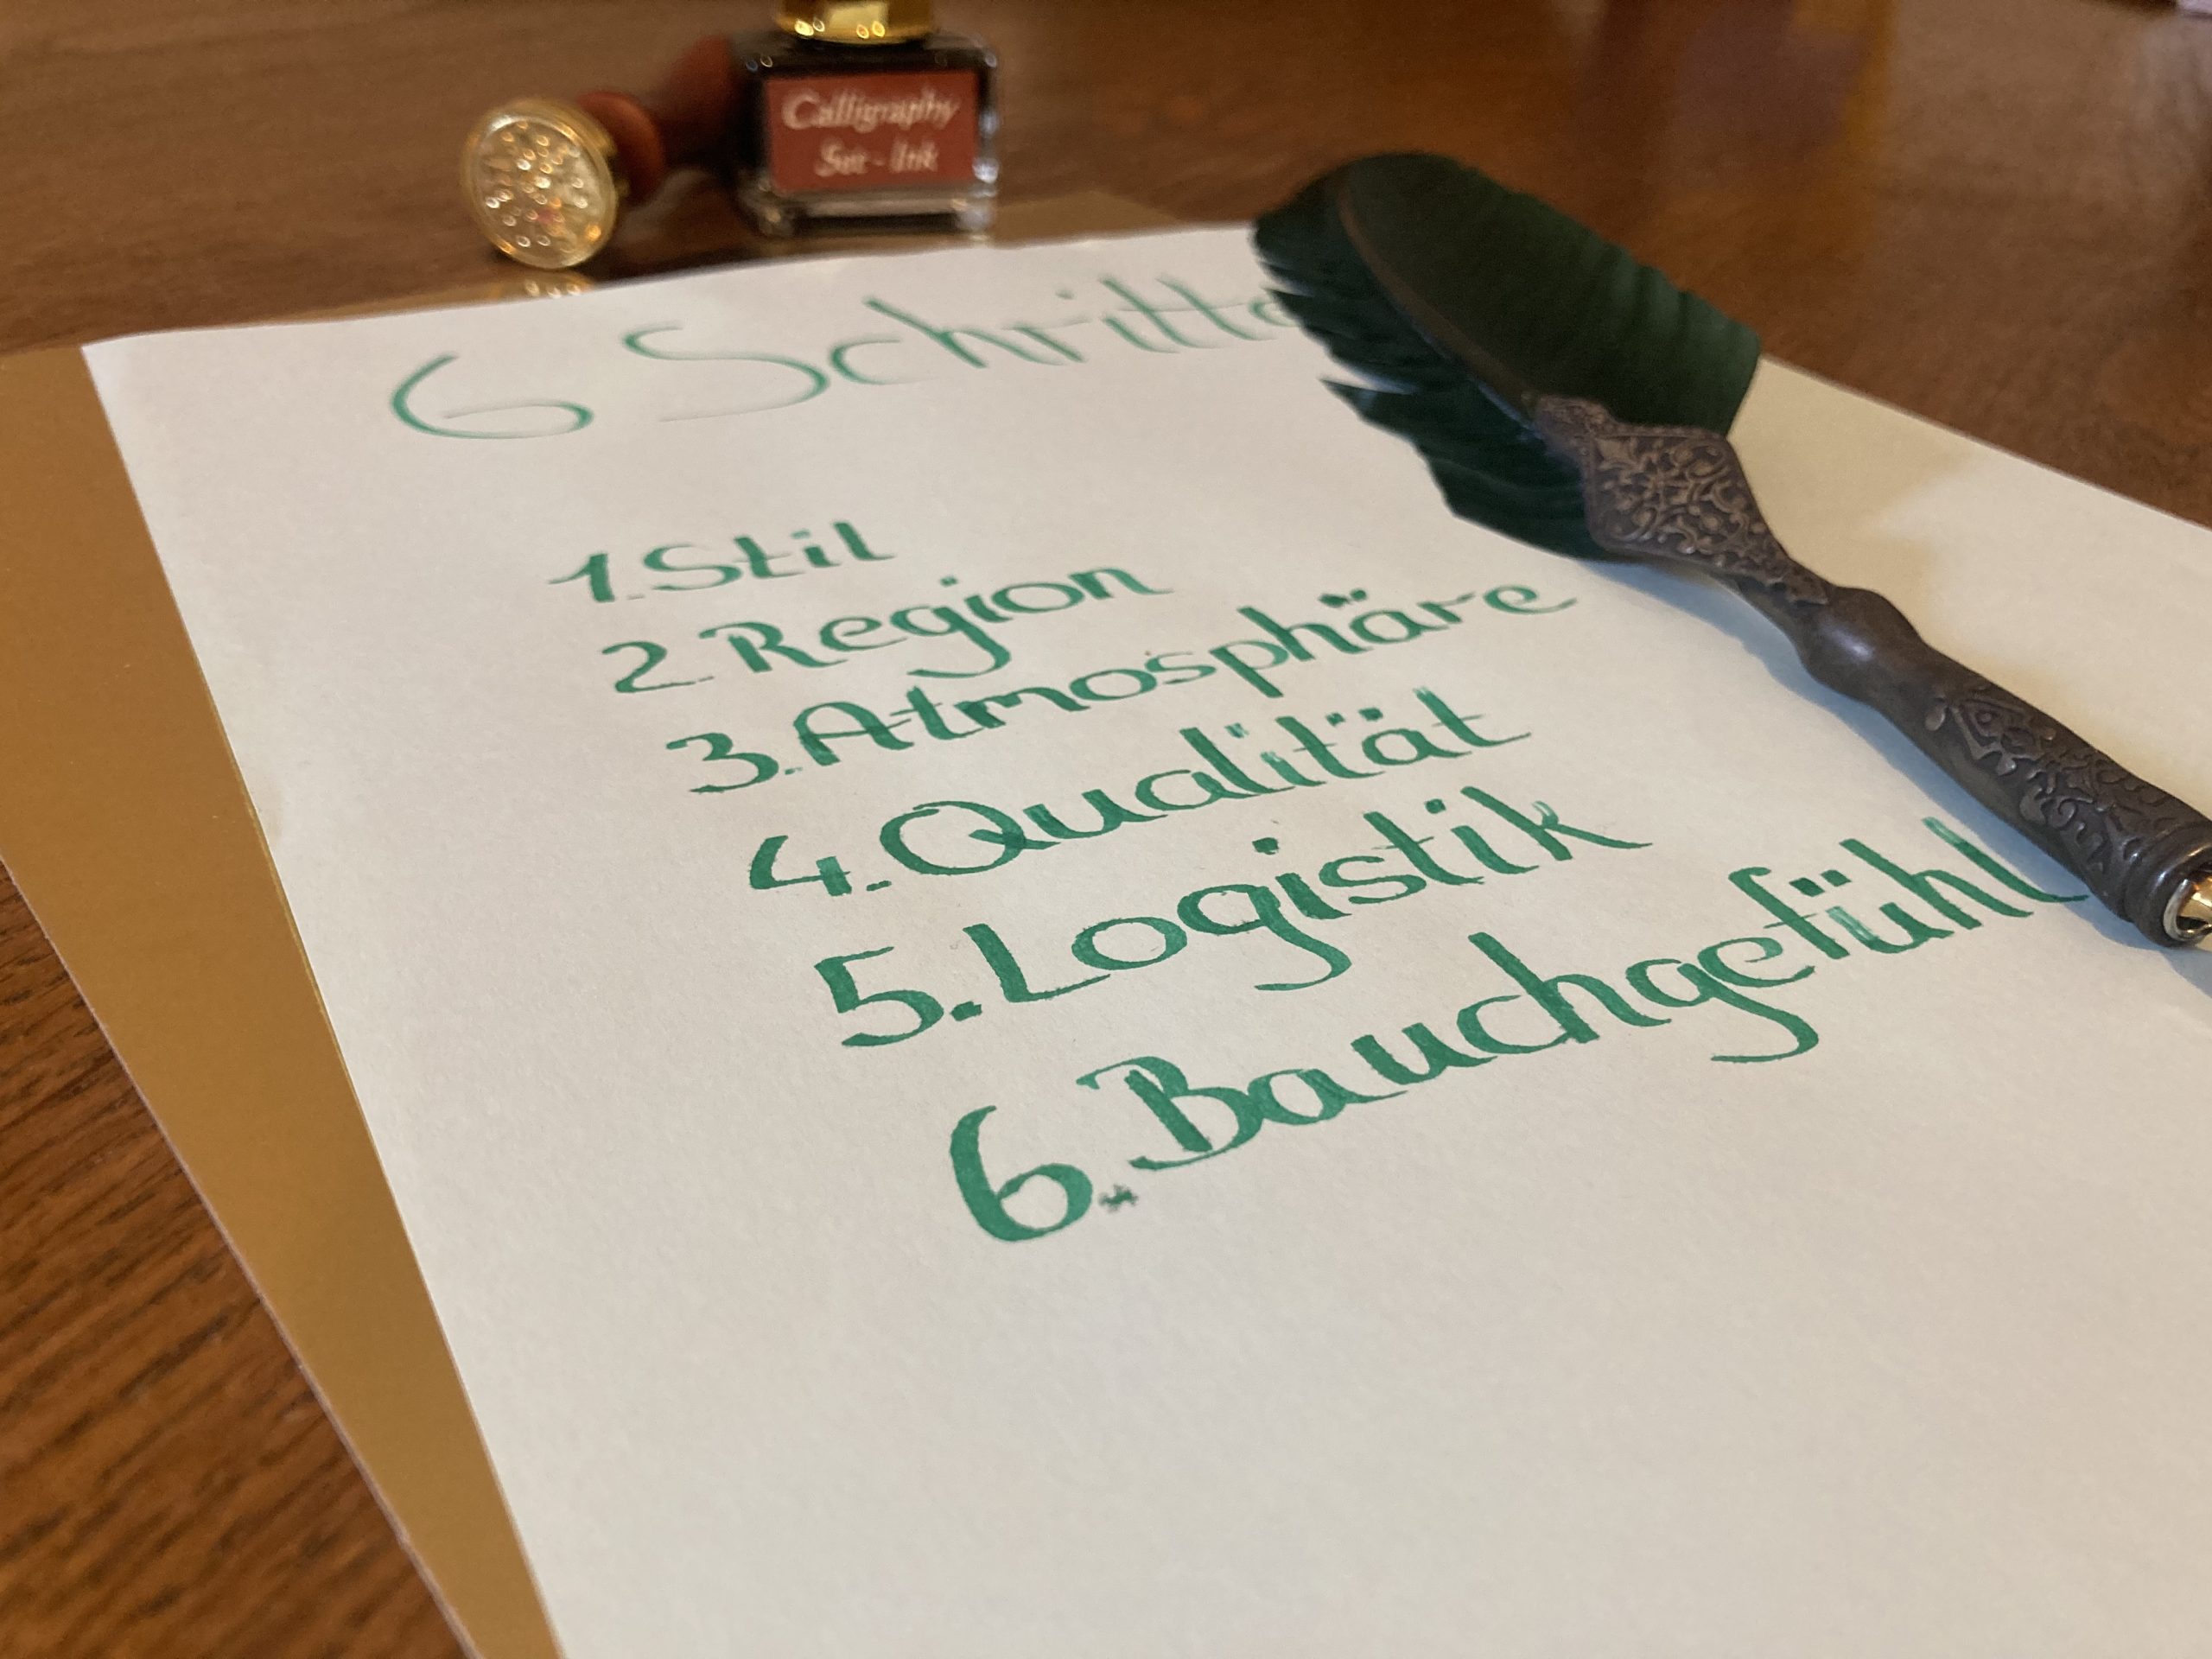 Calligraphy
Set - Ink
6 Schritte
1. Stil
2. Region
3. Atmosphäre
4. Qualität
5. Logistik
6. Bauchgefühl